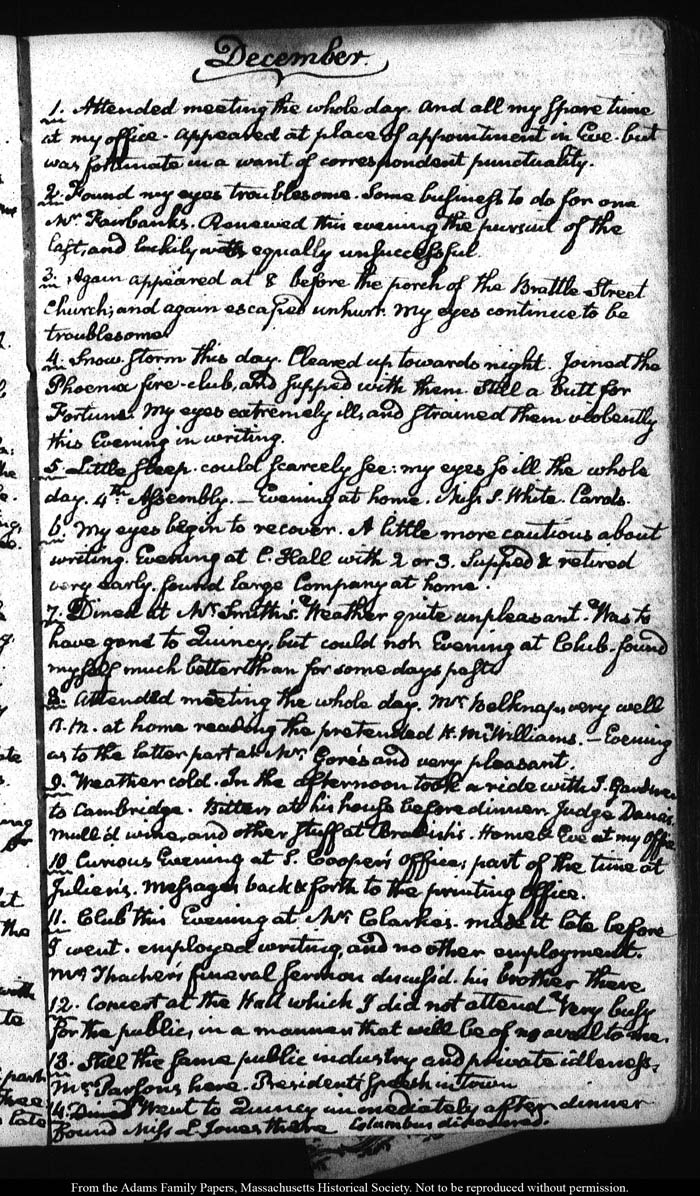 December.
1. Attended meeting the whole day. And all my spare time
at my office. Appeared at place of appointment in Eve. but
was fortunate in a want of correspondent punctuality.
2. Found my eyes troublesome. Some business to do for one
Mr. Fairbanks. Renewed this evening the pursuit of the
last, and luckily was equally unsuccessful.
3. Again appeared at 8 before the porch of the Brattle Street
Church; and again escaped unhurt. My eyes continue to be
troublesome.
4. Snow storm this day. Cleared up towards night. Joined the
Phoenix fire-club, and supped with them. Still a butt for
Fortune. My eyes extremely ill, and strained them violently
this Evening in writing.
5. Little sleep. could scarcely see: my eyes so ill the whole
day. 4th. Assembly. — Evening at home. Miss S. White. Cards.
6. My eyes begin to recover. A little more cautious about
writing. Evening at C. Hall with 2 or 3. Supped & retired
very early. found large Company at home.
7. Dined at Mr. Smith's. Weather quite unpleasant. Was to
have gone to Quincy, but could not. Evening at Club. found
myself much better than for some days past.
8. Attended meeting the whole day. Mr. Belknap, very well
at home reading the pretended Williams. — Evening
as to the latter part at Mr. Gore's and very pleasant.
9. Weather cold. In the afternoon took a ride with J. Gardner
to Cambridge. Bitters at his house before dinner. Judge Dana's
mull'd wine, and other stuff at Bradish's. Home & Eve at my office
10. Curious Evening at S. Cooper's Office; part of the time at
Julien's. Messages back & forth to the printing office.
11. Club this Evening at Mr. Clarke's. made it late before
I went. employed writing, and no other employment.
Mr. Thacher's funeral Sermon discuss'd. his brother there
12. Concert at the Hall which I did not attend. Very busy
for the public, in a manner that will be of no avail to me.
13. Still the same public industry and private idleness.
Mr. Parsons here. President's Speech in Town
14. Dined Went to Quincy immediately after dinner
found Miss L. Jones there Columbus discovered.
From the Adams Family Papers, Massachusetts Historical Society. Not to be reproduced without permission.